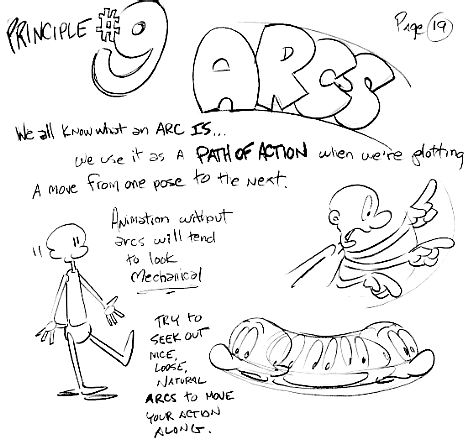 PRINCIPLE #9 ARCS Page 19
We all know what an ARC IS...
we use it as a PATH OF ACTION when we're plotting
a move from one pose to the next.
Animation without
arcs will tend
to look
Mechanical
TRY TO
SEEK OUT
NICE,
LOOSE,
NATURAL
ARCS TO MOVE
YOUR ACTION
ALONG.